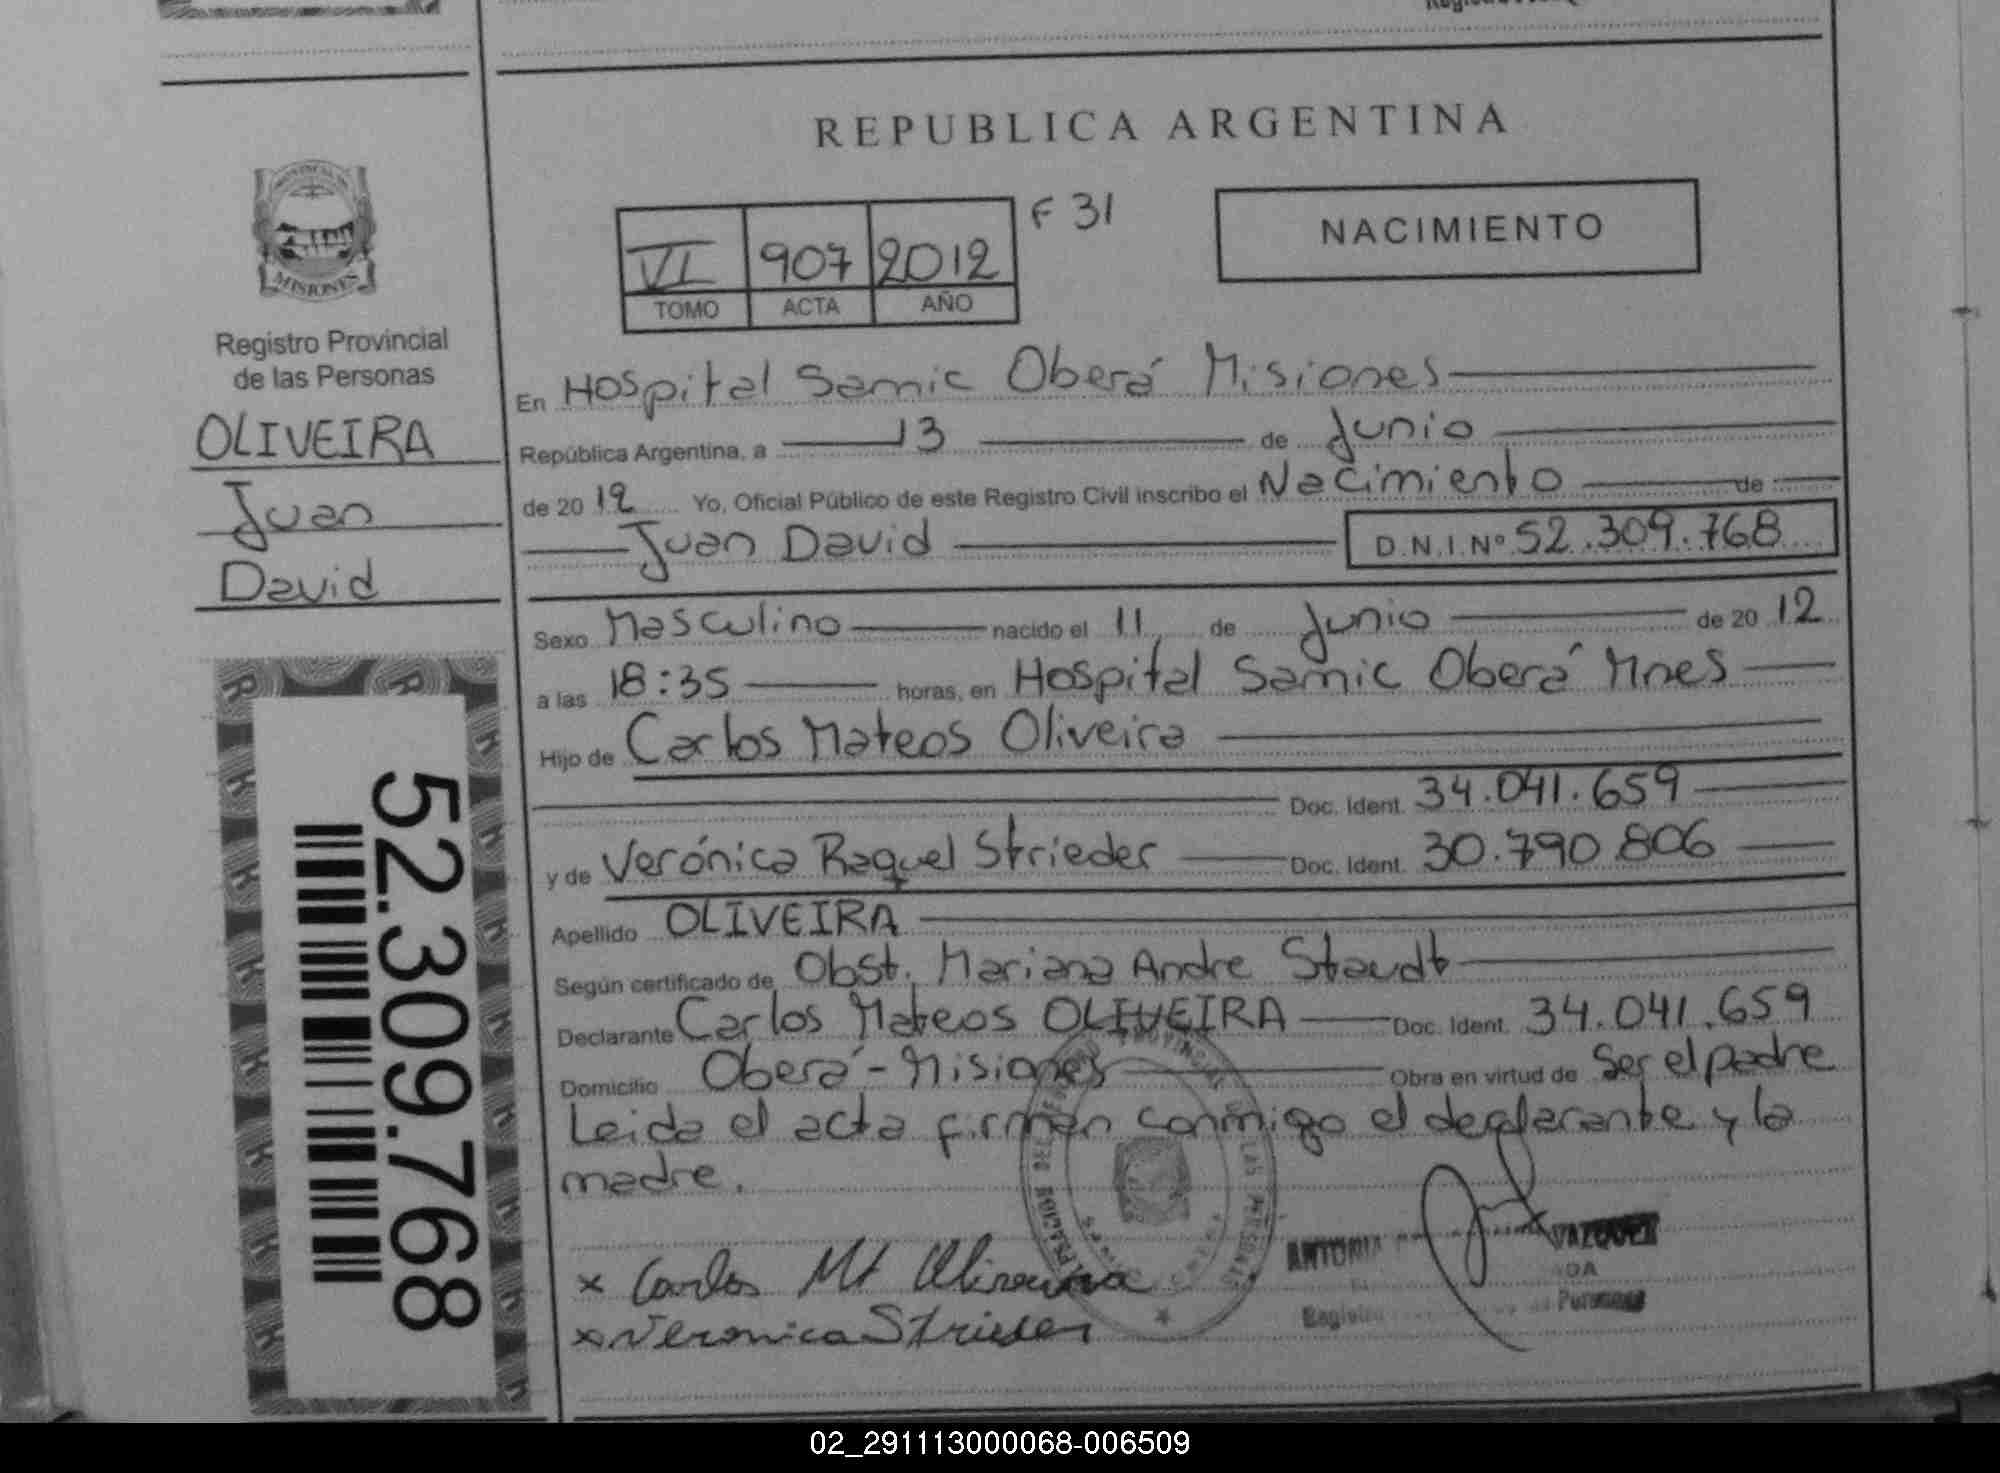 REPUBLICA ARGENTINA
F 31
VI 907 2012
TOMO ACTA AÑO
NACIMIENTO
MISIONES
Registro Provincial
de las Personas
OLIVEIRA
Juan
David
52.309.768
En Hospital Samic Oberá Misiones
República Argentina, a 13 de Junio
de 2012 Yo, Oficial Público de este Registro Civil inscribo el Nacimiento de
Juan David D.N.I.Nº 52.309.768
Sexo Masculino nacido el 11 de Junio de 2012
a las 18:35 horas, en Hospital Samic Oberá Mnes
Hijo de Carlos Mateos Oliveira
Doc. Ident. 34.041.659
y de Verónica Raquel Strieder Doc. Ident. 30.790.806
Apellido OLIVEIRA
Según certificado de Obst. Mariana Andre Staudt
Declarante Carlos Mateos OLIVEIRA Doc. Ident. 34.041.659
Domicilio Oberá - Misiones Obra en virtud de Ser el padre
Leida el acta firman conmigo el declarante y la
madre.
x Carlos Mt Oliveira
x Veronica Strieder
ANTONIA VAZQUEZ
02_291113000068-006509